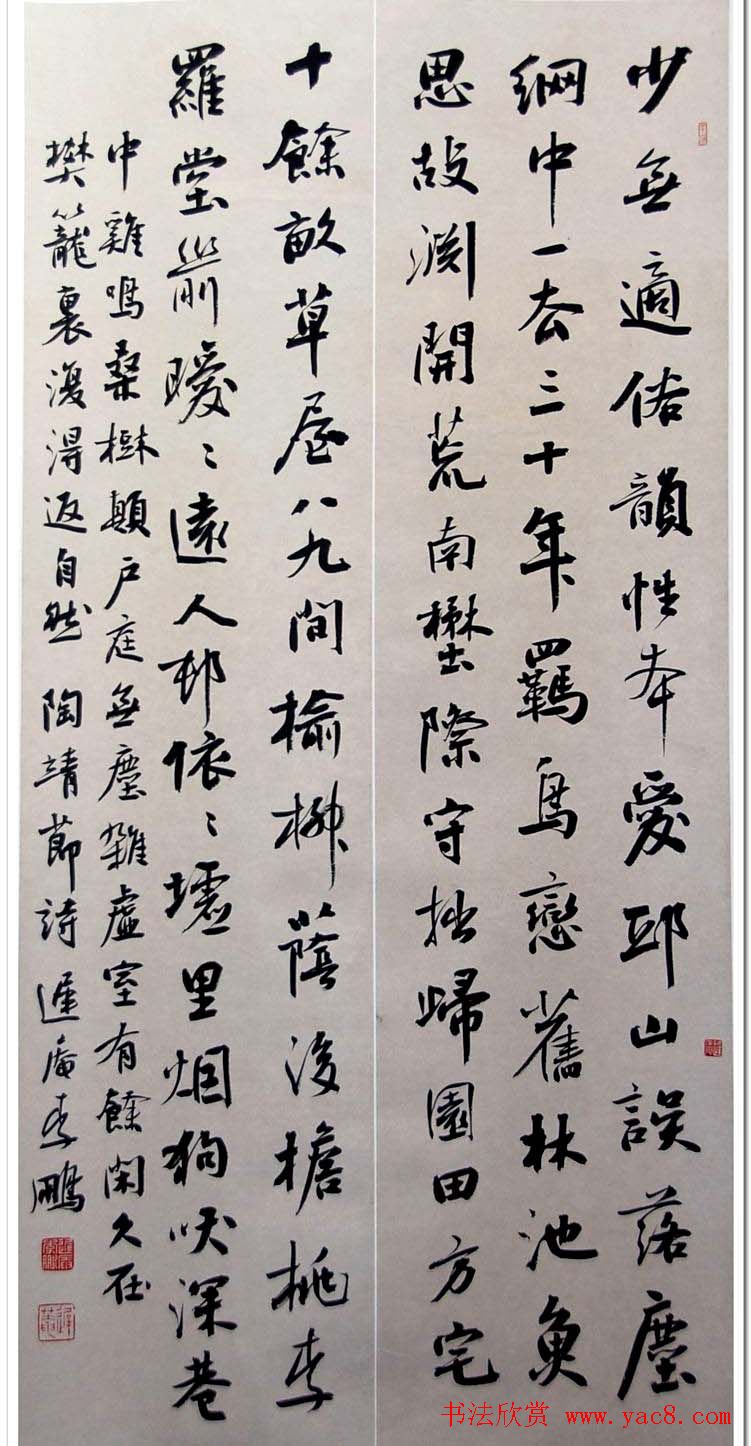 少無適俗韻性本愛邱山誤落塵
網中一去三十年羈鳥戀舊林池魚
思故淵開荒南壄際守拙歸園田方宅
十餘畝草屋八九間榆柳蔭後檐桃李
羅堂前曖〻遠人邨依〻墟里烟狗吠深巷
中雞鳴桑樹顛户庭無塵雜虛室有餘閑久在
樊籠裏復得返自然 陶靖節詩遲庵李鵬
书法欣赏 www.yac8.com